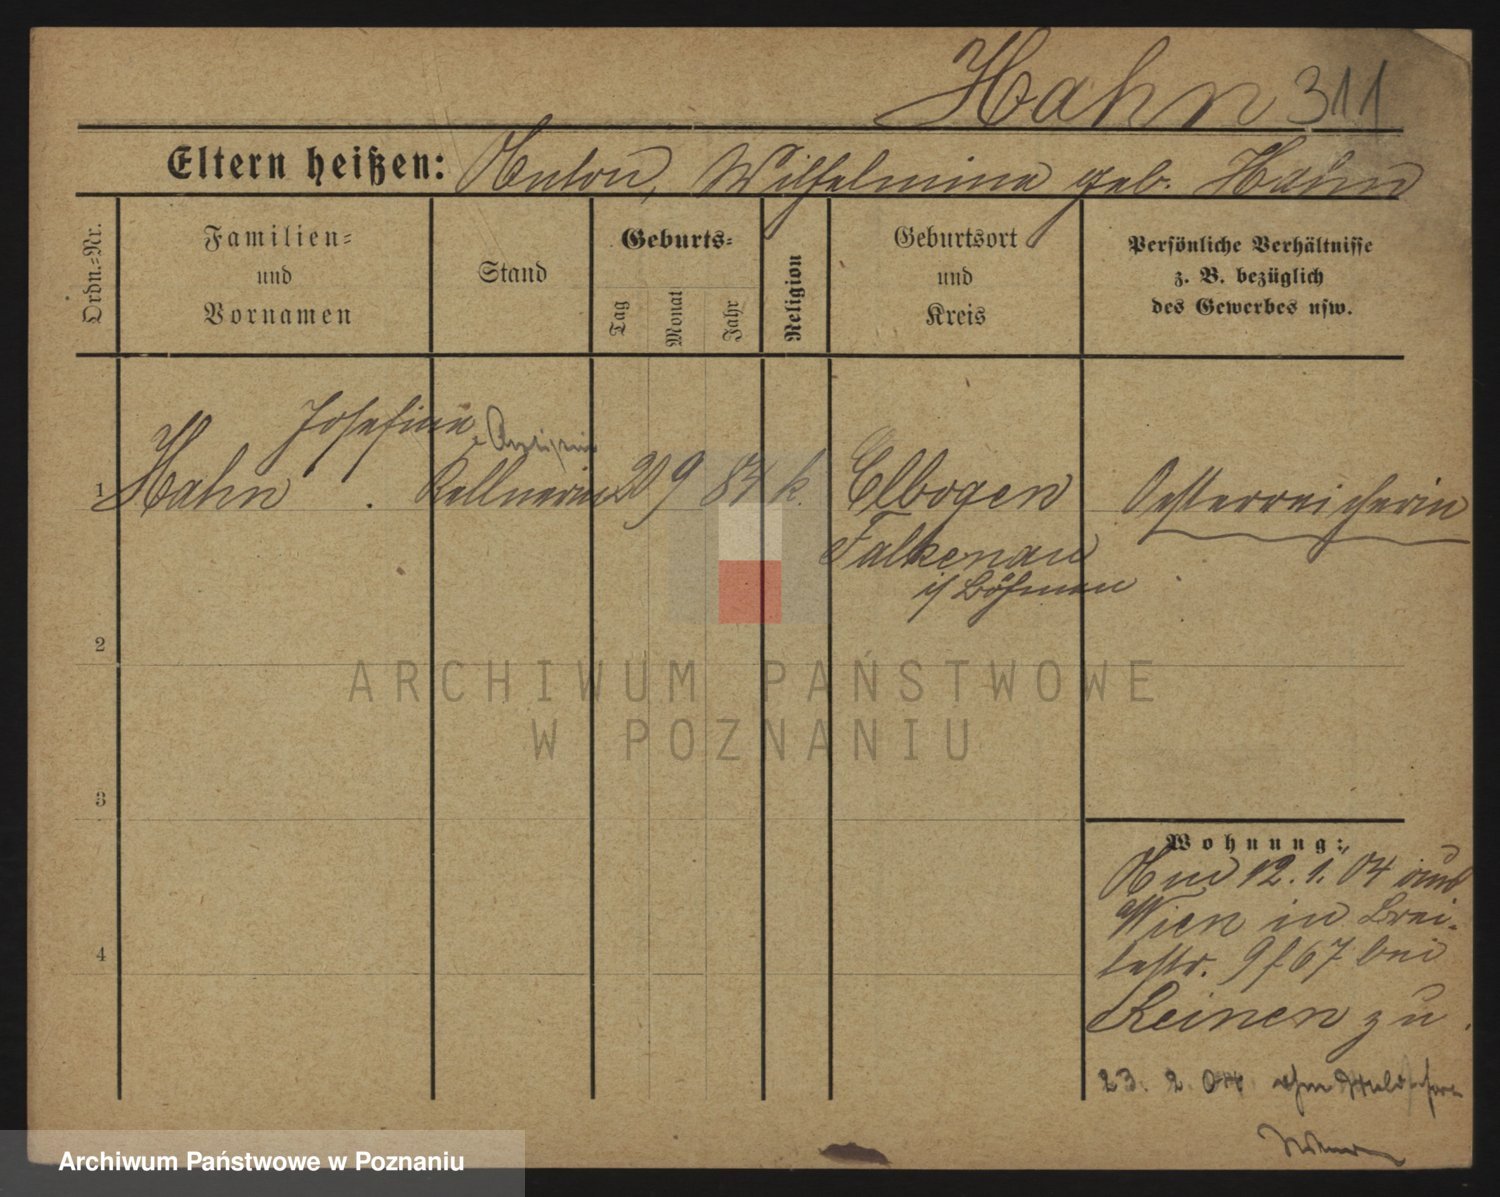 Hahn 311
Eltern heißen: Anton, Wilhelmina geb. Hahn
Ordn.-Nr.
Familien-
und
Vornamen
Stand
Geburts-
Tag
Monat
Jahr
Religion
Geburtsort
und
Kreis
Persönliche Verhältnisse
z. B. bezüglich
des Gewerbes usw.
Josefine
1 Hahn Kellnerin 20 9 84 k. Elbogen Oesterreicherin
Falkenau
i/ Böhmen
2
3
4
Wohnung:
Am 12. 1. 04 aus
Wien in Brei-
testr. 9 f 67 bei
Reinen zu.
23. 2. 04
ARCHIWUM PAŃSTWOWE
W POZNANIU
Archiwum Państwowe w Poznaniu